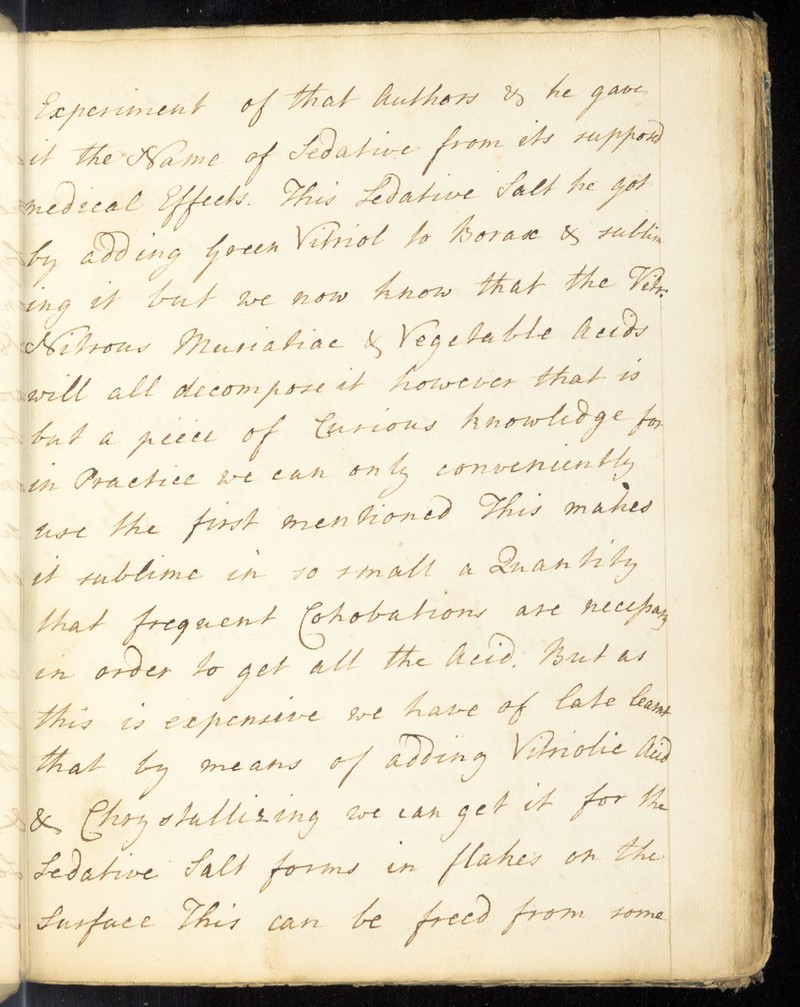 Experiment of that Authors & he gave
it the Name of Sedative from its suppos'd
medical Effects. This Sedative Salt he got
by adding Green Vitriol to Borax & sublim
ing it but we now know that the Vitr:
Nitrous Muriatiac & Vegetable Acids
will all decompose it however that is
but a piece of Curious knowledge for
in Practice we can only conveniently
use the first mentioned This makes
it sublime in so small a Quantity
that frequent Cohobations are necessary
in order to get all the Acid. But as
this is expensive we have of late learnt
that by means of adding Vitriolic Acid
& Chrystallizing we can get it for the
Sedative Salt forms in flakes on the
Surface This can be freed from some